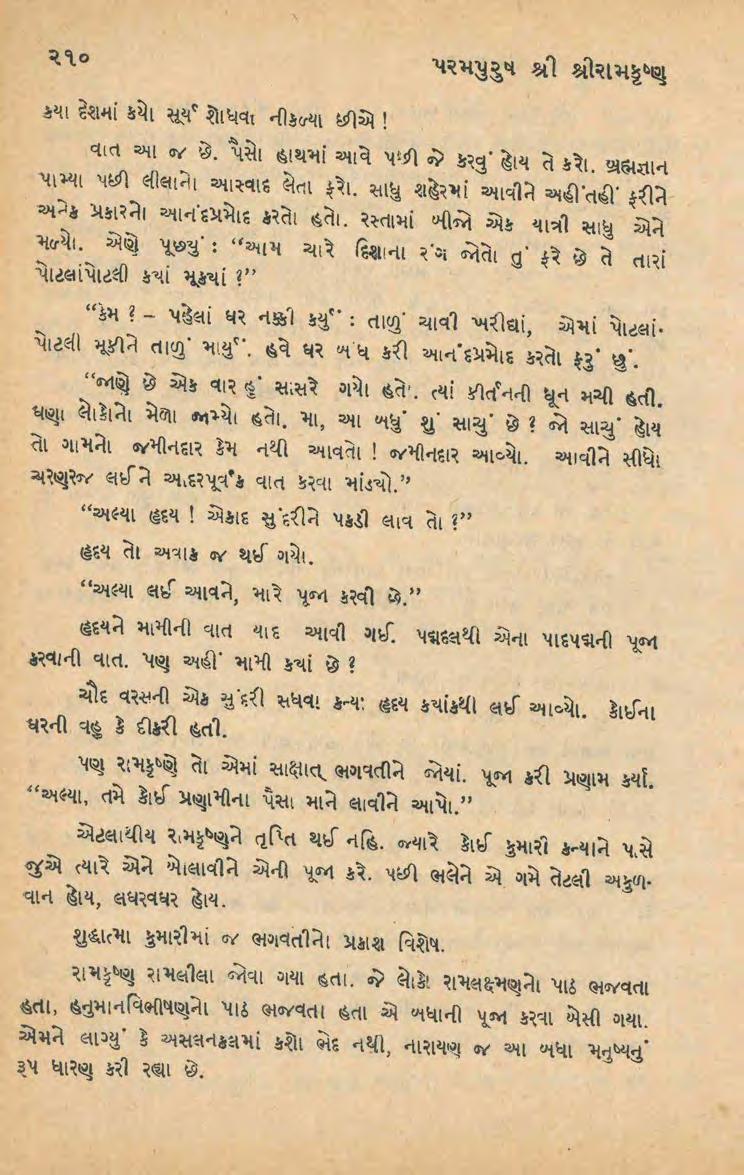 ૨૧૦
પરમપુરુષ શ્રી શ્રીરામકૃષ્ણ
કયા દેશમાં કયો સૂર્ય શોધવા નીકળ્યા છીએ !
વાત આ જ છે. પૈસો હાથમાં આવે પછી જે કરવું હોય તે કરો. બ્રહ્મજ્ઞાન
પામ્યા પછી લીલાનો આસ્વાદ લેતા ફરો. સાધુ શહેરમાં આવીને અહીંતહીં ફરીને
અનેક પ્રકારનો આનંદપ્રમોદ કરતો હતો. રસ્તામાં બીજો એક યાત્રી સાધુ એને
મળ્યો. એણે પૂછ્યું : “આમ ચારે દિશાના રંગ જોતો તું ફરે છે તે તારાં
પોટલાંપોટલી કયાં મૂક્યાં ?”
“કેમ ? – પહેલાં ઘર નક્કી કર્યું : તાળું ચાવી ખરીદ્યાં, એમાં પોટલાં-
પોટલી મૂકીને તાળું માર્યું. હવે ઘર બંધ કરી આનંદપ્રમોદ કરતો ફરું છું.
“જાણે છે એક વાર હું સાસરે ગયો હતો. ત્યાં કીર્તનની ધૂન મચી હતી.
ઘણા લોકોનો મેળો જામ્યો હતો. મા, આ બધું શું સાચું છે ? જો સાચું હોય
તો ગામનો જમીનદાર કેમ નથી આવતો ! જમીનદાર આવ્યો. આવીને સીધો
ચરણરજ લઈને આદરપૂર્વક વાત કરવા માંડ્યો.”
“અલ્યા હૃદય ! એકાદ સુંદરીને પકડી લાવ તો ?”
હૃદય તો અવાક જ થઈ ગયો.
“અલ્યા લઈ આવને, મારે પૂજા કરવી છે.”
હૃદયને મામીની વાત યાદ આવી ગઈ. પદ્મદલથી એના પાદપદ્મની પૂજા
કરવાની વાત. પણ અહીં મામી કયાં છે ?
ચૌદ વરસની એક સુંદરી સધવા કન્યા હૃદય કયાંકથી લઈ આવ્યો. કોઈના
ઘરની વહુ કે દીકરી હતી.
પણ રામકૃષ્ણે તો એમાં સાક્ષાત્ ભગવતીને જોયાં. પૂજા કરી પ્રણામ કર્યા.
“અલ્યા, તમે કોઈ પ્રણામીના પૈસા માને લાવીને આપો.”
એટલાથીય રામકૃષ્ણને તૃપ્તિ થઈ નહિ. જ્યારે કોઈ કુમારી કન્યાને પાસે
જુએ ત્યારે એને બોલાવીને એની પૂજા કરે. પછી ભલેને એ ગમે તેટલી અકુળ-
વાન હોય, લઘરવઘર હોય.
શુદ્ધાત્મા કુમારીમાં જ ભગવતીનો પ્રકાશ વિશેષ.
રામકૃષ્ણ રામલીલા જોવા ગયા હતા. જે લોકો રામલક્ષ્મણનો પાઠ ભજવતા
હતા, હનુમાનવિભીષણનો પાઠ ભજવતા હતા એ બધાની પૂજા કરવા બેસી ગયા.
એમને લાગ્યું કે અસલનકલમાં કશો ભેદ નથી, નારાયણ જ આ બધા મનુષ્યનું
રૂપ ધારણ કરી રહ્યા છે.